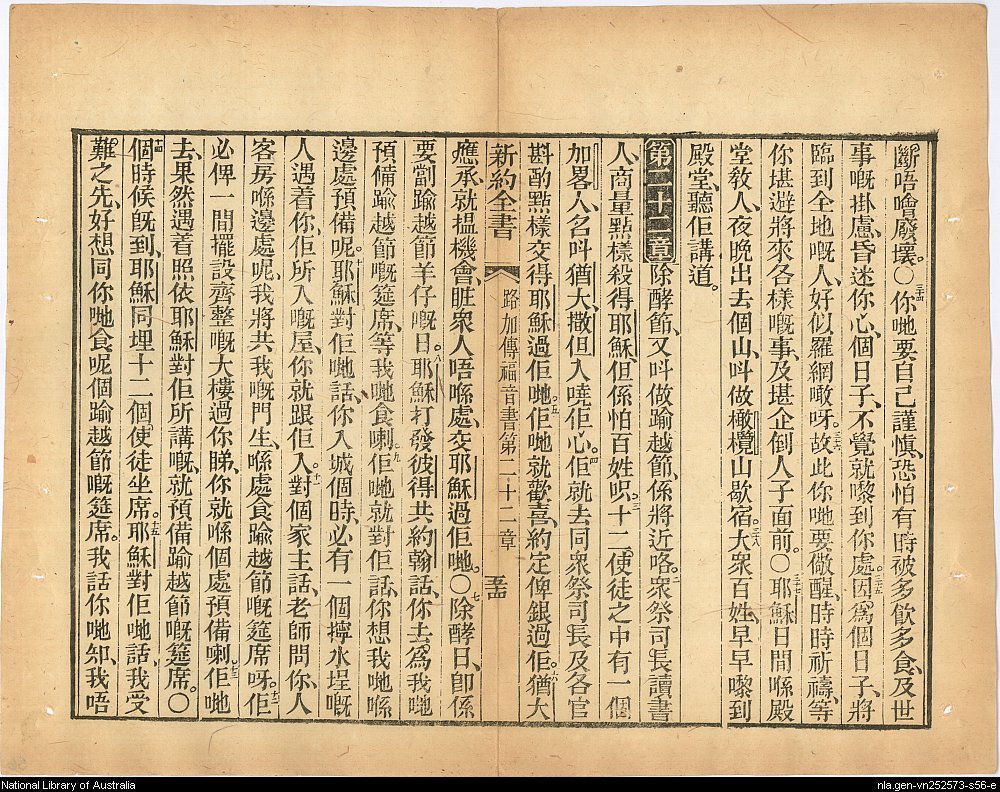 斷唔噲廢壞。○三十四你哋要自己謹愼、恐怕有時被多飮多食、及世
事嘅掛慮、昏迷你心、個日子、不覺就嚟到你處。三十五因爲個日子、將
臨到全地嘅人、好似羅網噉呀。三十六故此你哋要儆醒時時祈禱、等
你堪避將來各樣嘅事、及堪企倒人子面前。○三十七耶穌日間喺殿
堂敎人、夜晚出去個山、叫做橄欖山歇宿。三十八大衆百姓、早早嚟到
殿堂、聽佢講道。
第二十二章除酵節、又叫做踰越節、係將近咯。二衆祭司長讀書
人、商量點樣殺得耶穌、但係怕百姓呮。三十二使徒之中有一個
加畧人、名叫猶大、撒但入嘵佢心。四佢就去同衆祭司長及各官
斟酌點樣交得耶穌過佢哋。五佢哋就歡喜、約定俾銀過佢。六猶大
新約全書 路加傳福音書第二十二章 五十四
應承、就揾機會、趁衆人唔喺處、交耶穌過佢哋。○七除酵日、卽係
要劏踰越節羊仔嘅日。八耶穌打發彼得共約翰話、你去爲我哋
預備踰越節嘅筵席、等我哋食喇。九佢哋就對佢話、你想我哋喺
邊處預備呢。十耶穌對佢哋話、你入城個時、必有一個擰水埕嘅
人遇着你、佢所入嘅屋、你就跟佢入。十一對個家主話、老師問你、人
客房喺邊處呢、我將共我嘅門生、喺處食踰越節嘅筵席呀。十二佢
必俾一間擺設齊整嘅大樓過你睇、你就喺個處預備喇。十三佢哋
去、果然遇着照依耶穌對佢所講嘅、就預備踰越節嘅筵席。○
十四個時候旣到、耶穌同埋十二個使徒坐席。十五耶穌對佢哋話、我受
難之先、好想同你哋食呢個踰越節嘅筵席。我話你哋知、我唔
National Library of Australia
nla.gen-vn252573-s56-e